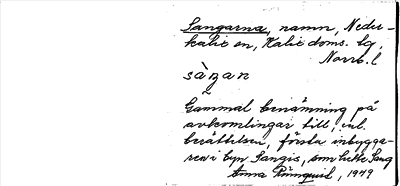 Sangarna, namn, Neder-
kalix sn, Kalix doms. lg,
Norrb. l
sàŋan
Gammal benämning på
avkomlingar till, enl.
berättelsen, första inbygga-
ren i byn Sangis, som hette Sang
Anna Rönnquist, 1949